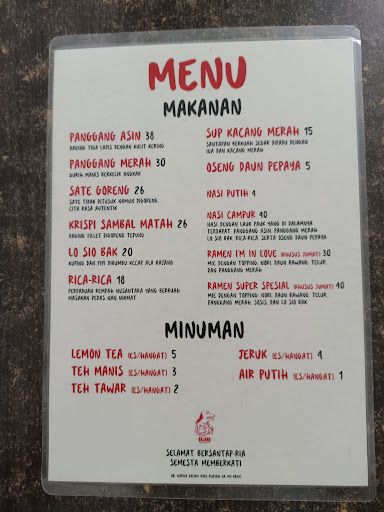 MENU
MAKANAN
PANGGANG ASIN 38
DAGING TIGA LAPIS DENGAN KULIT KERING
PANGGANG MERAH 30
GURIH MANIS BERKELIR ANGKAK
SATE GORENG 26
SATE TIDAK DITUSUK NAMUN DIGORENG.
CITA RASA AUTENTIK
KRISPI SAMBAL MATAH 26
DAGING FILLET DIGORENG TEPUNG
LO SIO BAK 20
KUPING DAN PIPI DIBUMBU KECAP ALA BAJANG
RICA-RICA 18
PERPADUAN REMPAH NUSANTARA YANG BERBUAH
MASAKAN PEDAS NAN NIKMAT
SUP KACANG MERAH 15
SANTAPAN BERKUAH SEGAR DIPADU DENGAN
IGA DAN KACANG MERAH
OSENG DAUN PEPAYA 5
NASI PUTIH 4
NASI CAMPUR 40
NASI DENGAN LAUK PAUK YANG DI DALAMNYA
TERDAPAT: PANGGANG ASIN, PANGGANG MERAH
LO SIO BAK, RICA-RICA SERTA OSENG DAUN PEPAYA
RAMEN I'M IN LOVE (KHUSUS JUMAT) 30
MIE DENGAN TOPPING: NORI, DAUN BAWANG, TELUR,
DAN PANGGANG MERAH
RAMEN SUPER SPESIAL (KHUSUS JUMAT) 40
MIE DENGAN TOPPING: NORI, DAUN BAWANG, TELUR,
PANGGANG MERAH, SOSIS, DAN LO SIO BAK
MINUMAN
LEMON TEA (ES/HANGAT) 5
TEH MANIS (ES/HANGAT) 3
TEH TAWAR (ES/HANGAT) 2
JERUK (ES/HANGAT) 4
AIR PUTIH (ES/HANGAT) 1
BAJANG
SELAMAT BERSANTAP-RIA
SEMESTA MEMBERKATI